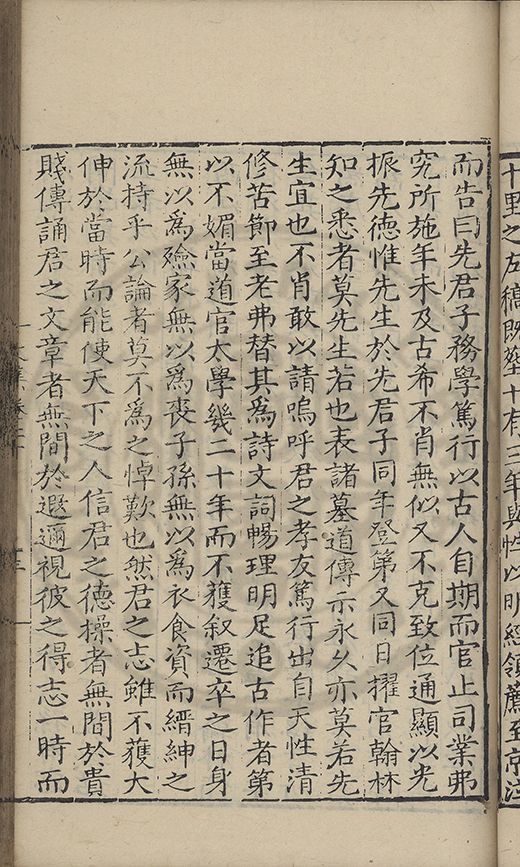 十里之左稿既塟十有三年與性以明經領薦至京
而告曰先君子務學篤行以古人自期而官止司業弗
究所施年未及古希不肖無似又不克致位通顯以光
振先德惟先生於先君子同年登第又同日擢官翰林
知之悉者莫先生若也表諸墓道傳示永久亦莫若先
生宜也不肖敢以請嗚呼君之孝友篤行出自天性清
修苦節至老弗替其為詩文詞暢理明足追古作者第
以不媚當道官太學幾二十年而不獲叙遷卒之日身
無以為殮家無以為喪子孫無以為衣食資而縉紳之
流持乎公論者莫不為之悼歎也然君之志雖不獲大
伸於當時而能使天下之人信君之德操者無間於貴
賤傳誦君之文章者無間於遐邇視彼之得志一時而